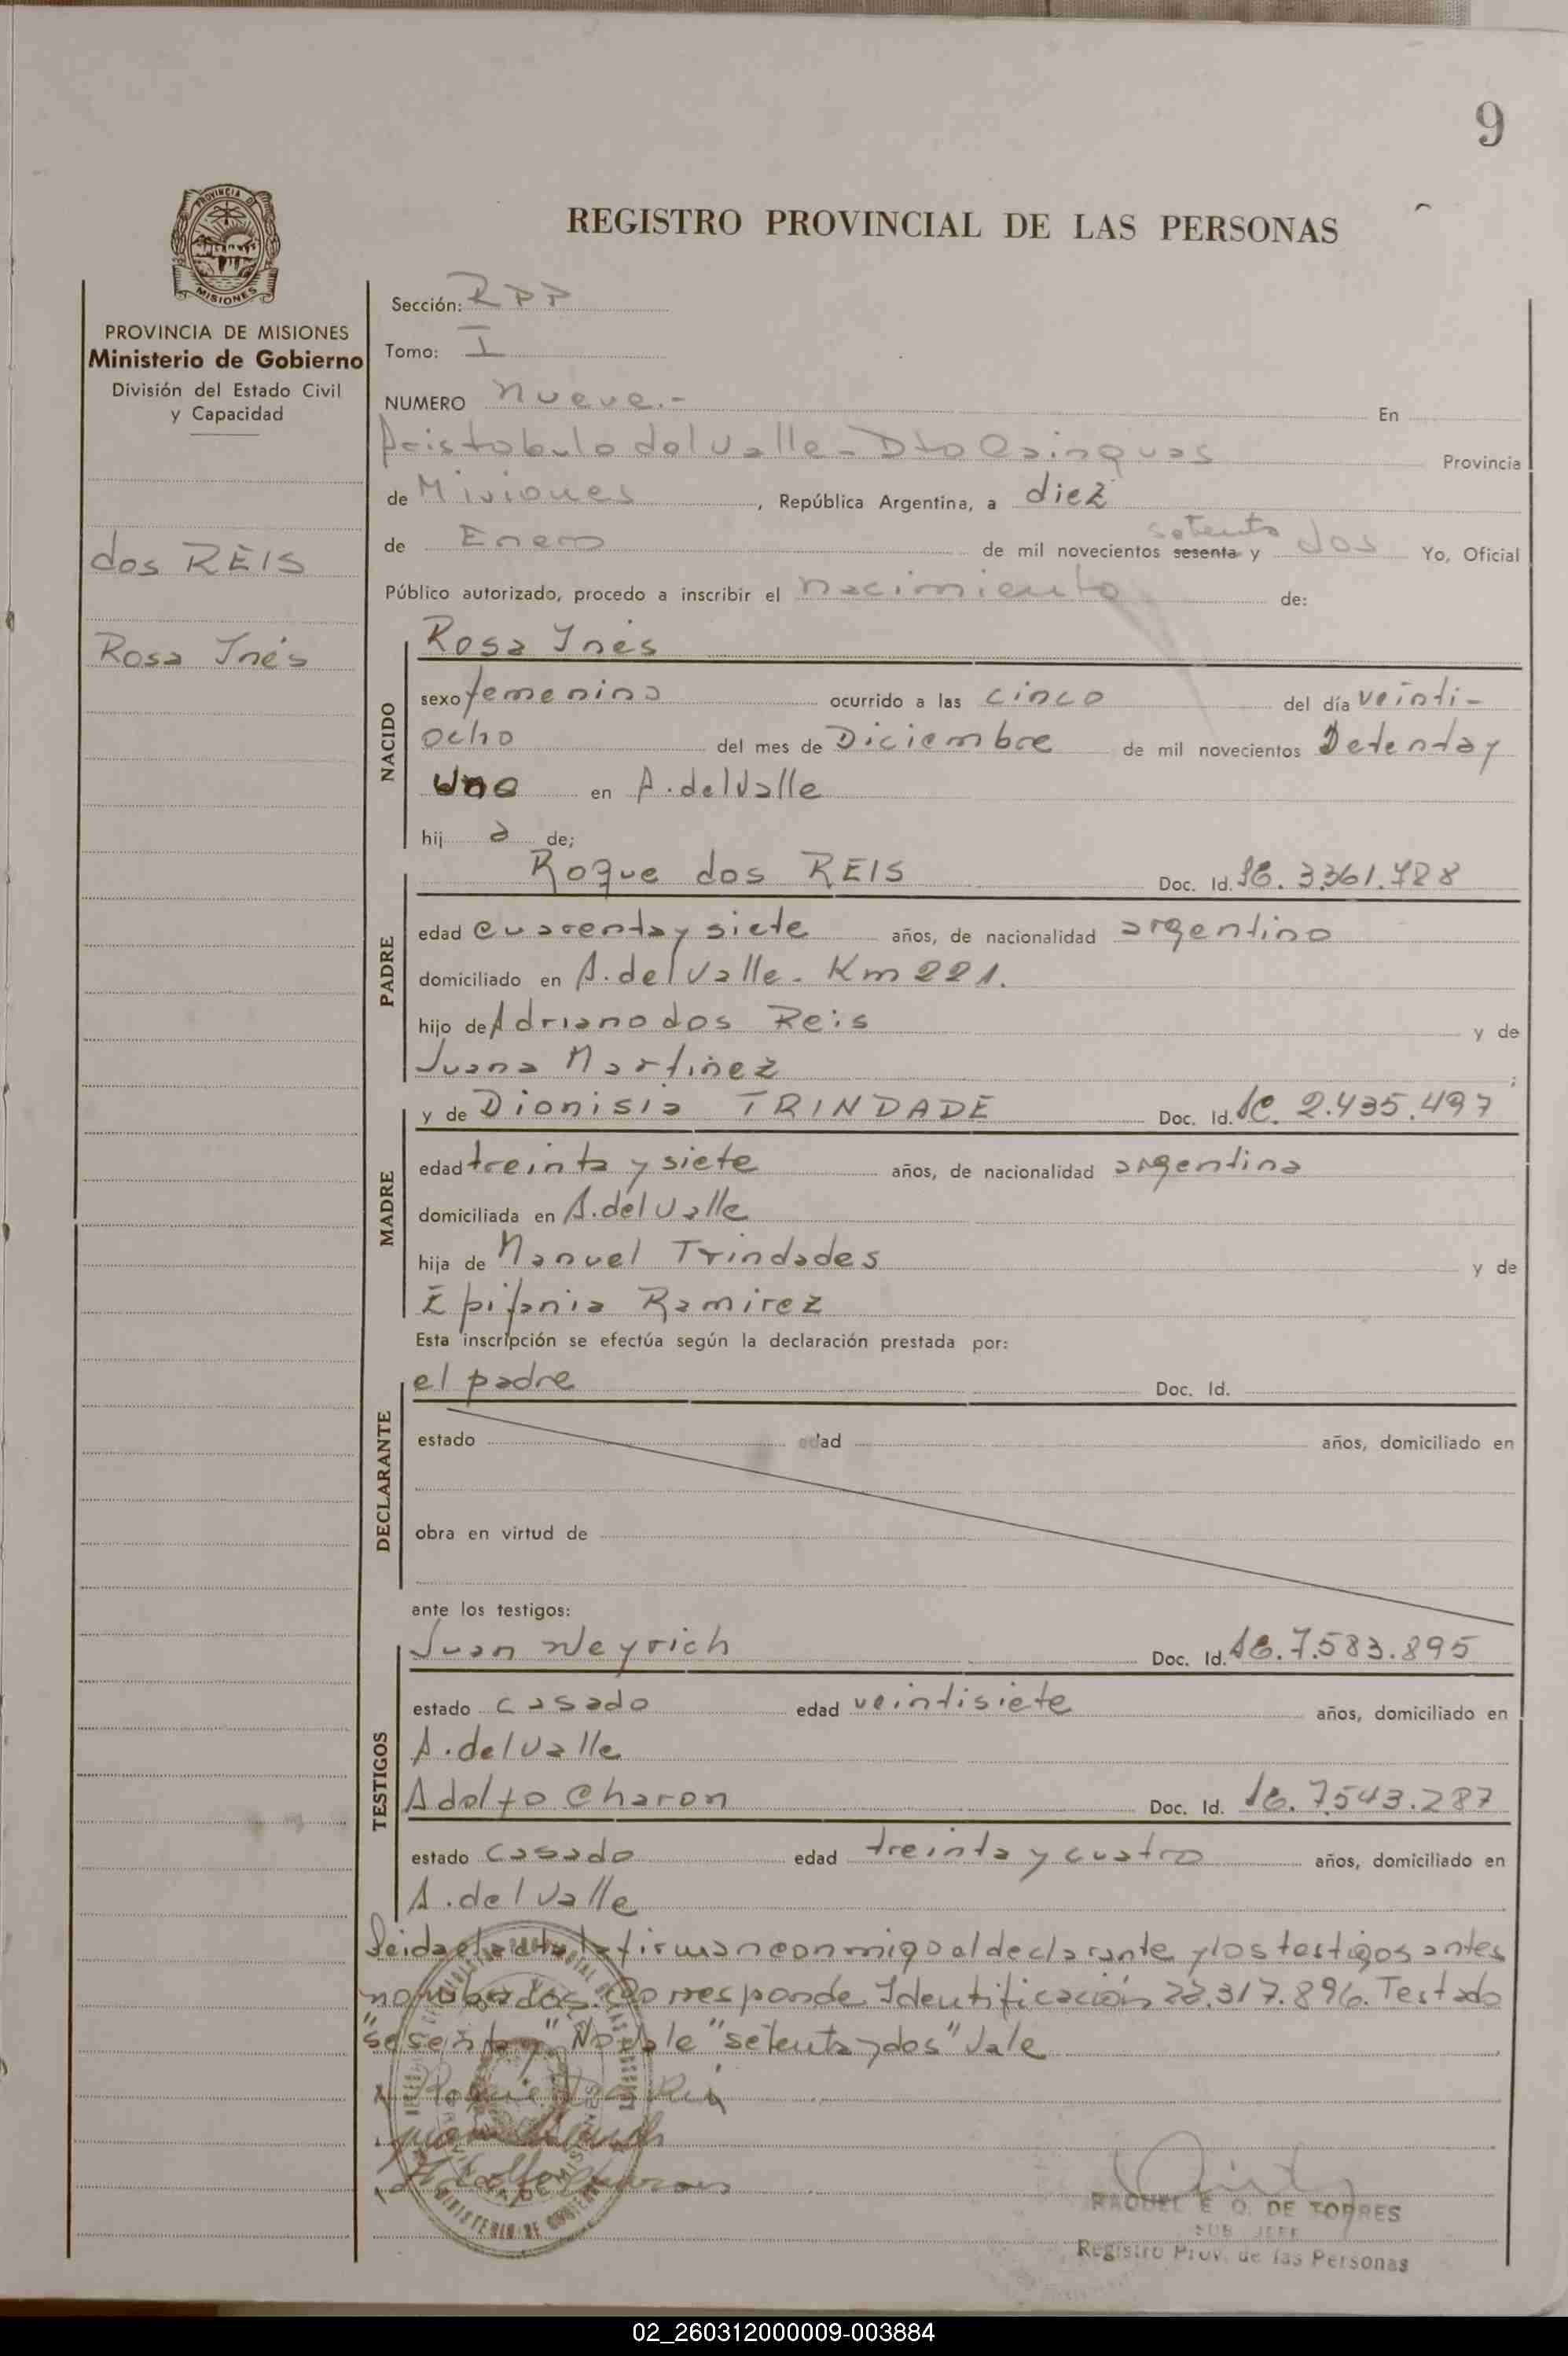 9
REGISTRO PROVINCIAL DE LAS PERSONAS
PROVINCIA DE
MISIONES
PROVINCIA DE MISIONES
Ministerio de Gobierno
División del Estado Civil
y Capacidad
dos REIS
Rosa Inés
Sección: RPP
Tomo: I
NUMERO nueve.- En
Aristobulo del Valle - Dto Cainguas Provincia
de Misiones, República Argentina, a diez
setenta
de Enero de mil novecientos sesenta y dos Yo, Oficial
Público autorizado, procedo a inscribir el nacimiento de:
NACIDO
Rosa Inés
sexo femenino ocurrido a las cinco del día veinti-
ocho del mes de Diciembre de mil novecientos Setenta y
uno en A. del Valle
hij a de;
PADRE
Roque dos REIS Doc. Id. 3.361.788
edad cuarenta y siete años, de nacionalidad argentino
domiciliado en A. del Valle - Km 221.
hijo de Adriano dos Reis y de
Juana Martinez ;
MADRE
y de Dionisia TRINDADE Doc. Id. LC. 2.435.497
edad treinta y siete años, de nacionalidad argentina
domiciliada en A. del Valle
hija de Manuel Trindades y de
Epifania Ramirez
Esta inscripción se efectúa según la declaración prestada por:
DECLARANTE
el padre Doc. Id.
estado edad años, domiciliado en
obra en virtud de
ante los testigos:
TESTIGOS
Juan Weyrich Doc. Id. 7.583.895
estado casado edad veintisiete años, domiciliado en
A. del Valle
Adolfo Charon Doc. Id. 7.543.287
estado casado edad treinta y cuatro años, domiciliado en
A. del Valle
Leida el acta la firman conmigo el declarante y los testigos antes
nombrados. Corresponde Identificación 22.317.896. Testado
"sesenta y" No vale "setenta y dos" Vale
MINISTERIO DE GOBIERNO
RAQUEL E. O. DE TORRES
SUB JEFE
Registro Prov. de las Personas
02_260312000009-003884